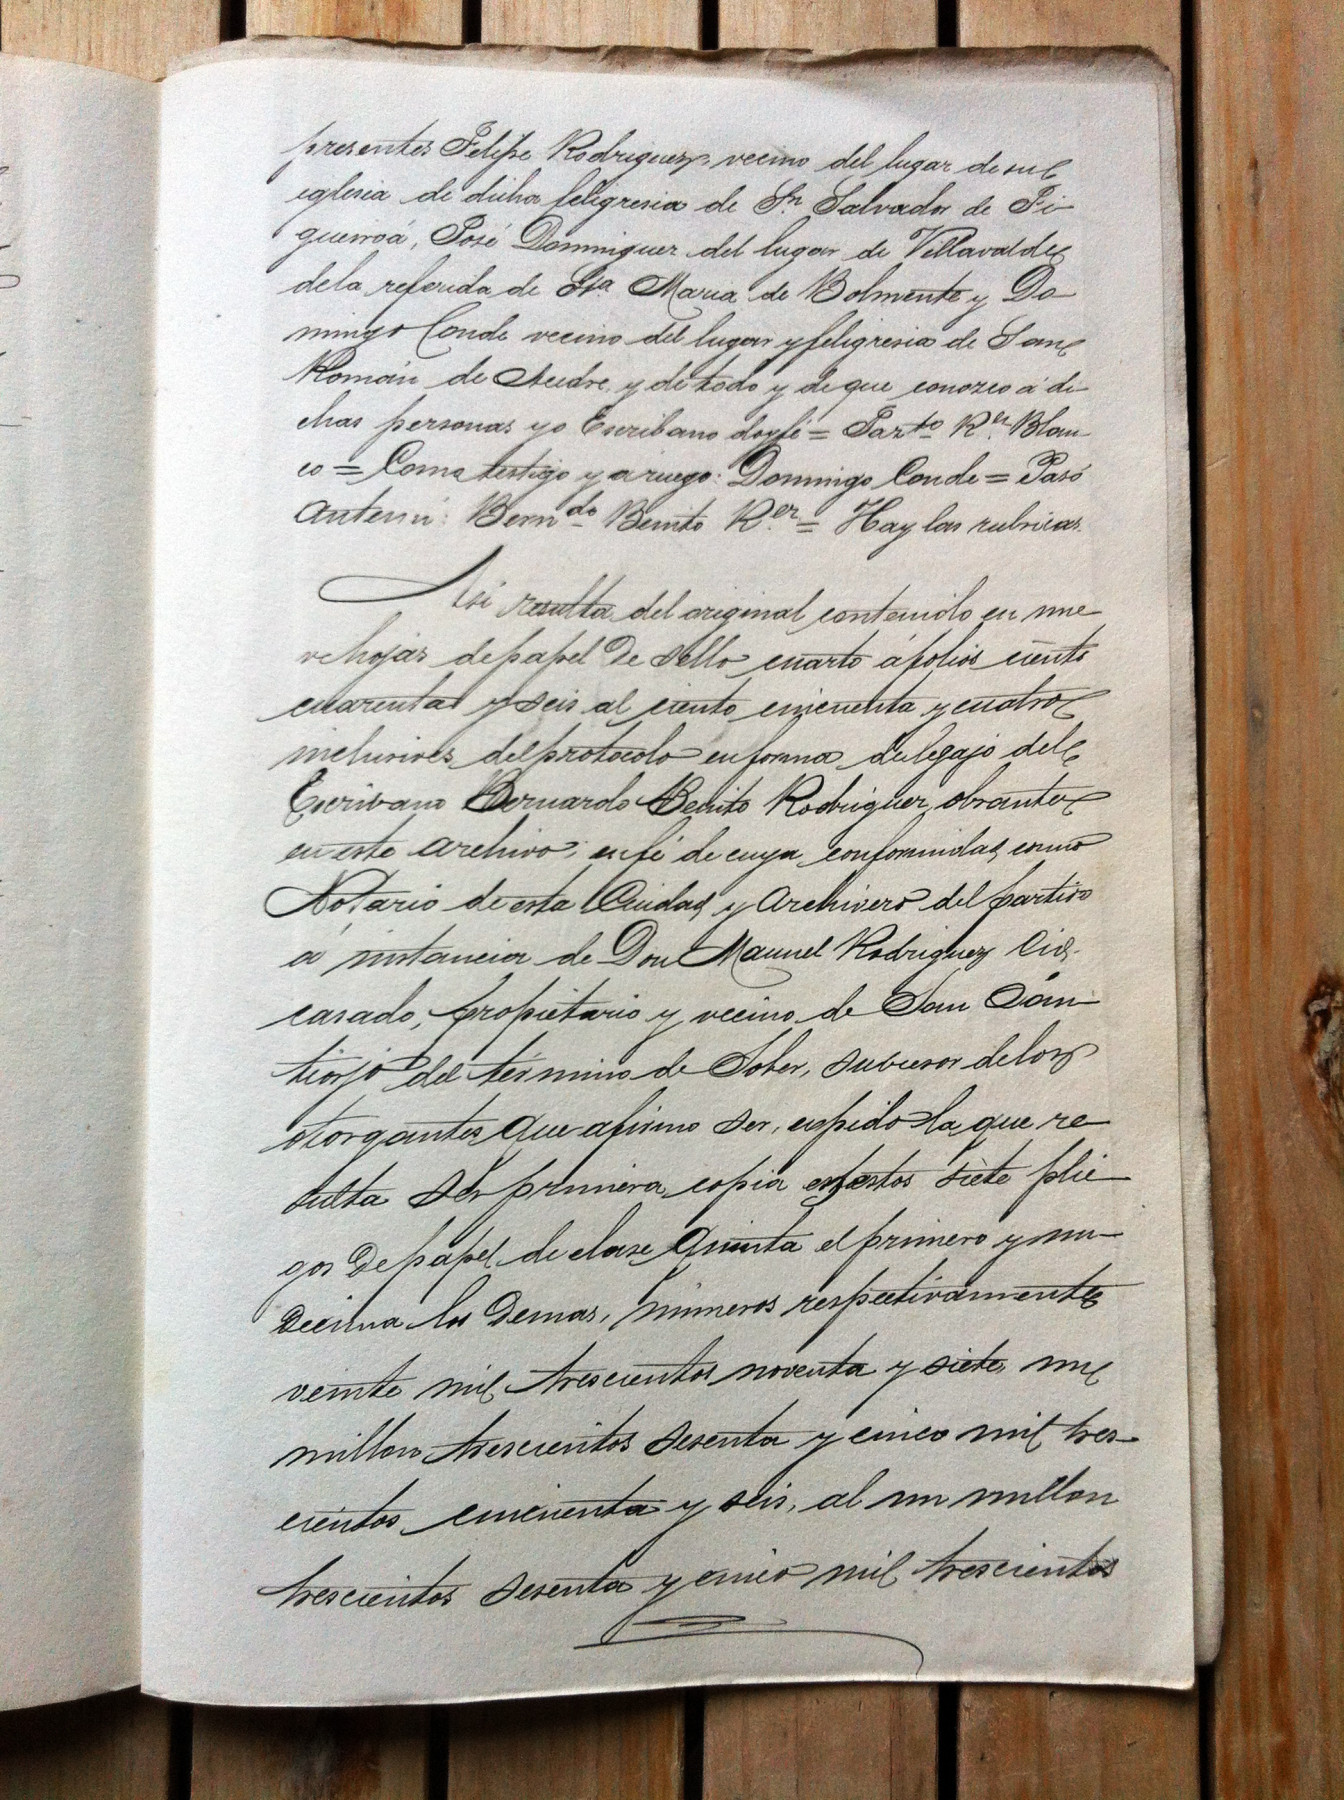 presentes Felipe Rodriguez vecino del lugar de su
iglesia de dicha feligresia de Sn. Salvador de Fi-
gueiroá, José Dominguez del lugar de Villavalde
dela referida de Sta. Maria de Bolmente y Do-
mingo Conde vecino del lugar y feligresia de San
Román de y de todo y de que conozco á di-
chas personas yo Escribano doy fé = Rz. Blan-
co = Como testigo y a ruego: Domingo Conde = Pasó
Antemi: Berndo Benito Rer = Hay las rubricas.
Asi resulta del original contenido en nue-
ve hojas de papel de sello cuarto á folios ciento
cuarenta y seis al ciento cincuenta y cuatro
inclusives del protocolo en forma de legajo del
Escribano Bernardo Benito Rodriguez, obrante
en este archivo; en fé de cuya conformidad, como
Notario de esta Ciudad y Archivero del partido
á instancia de Don Manuel Rodriguez Cid,
casado, propietario y vecino de San
del término de Sober, sucesor delos
otorgantes que afirmo ser, expido la que re-
sulta ser primera copia en estos siete plie-
gos de papel de clase quinta el primero y un-
decima los demas, números respectivamente
veinte mil trescientos noventa y siete, un
millon trescientos sesenta y cinco mil tres-
cientos cincuenta y seis, al un millon
trescientos sesenta y cinco mil trescientos